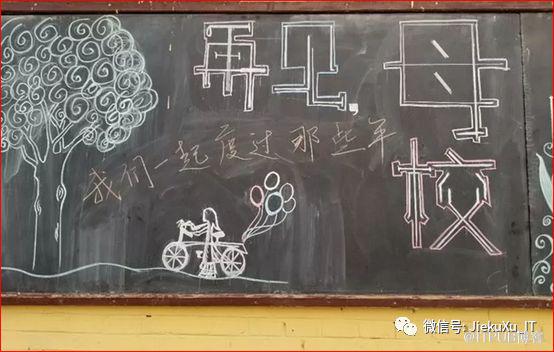 再见，母校
我们一起度过那些年
微信号: JiekuXu_IT
@ITPUB博客